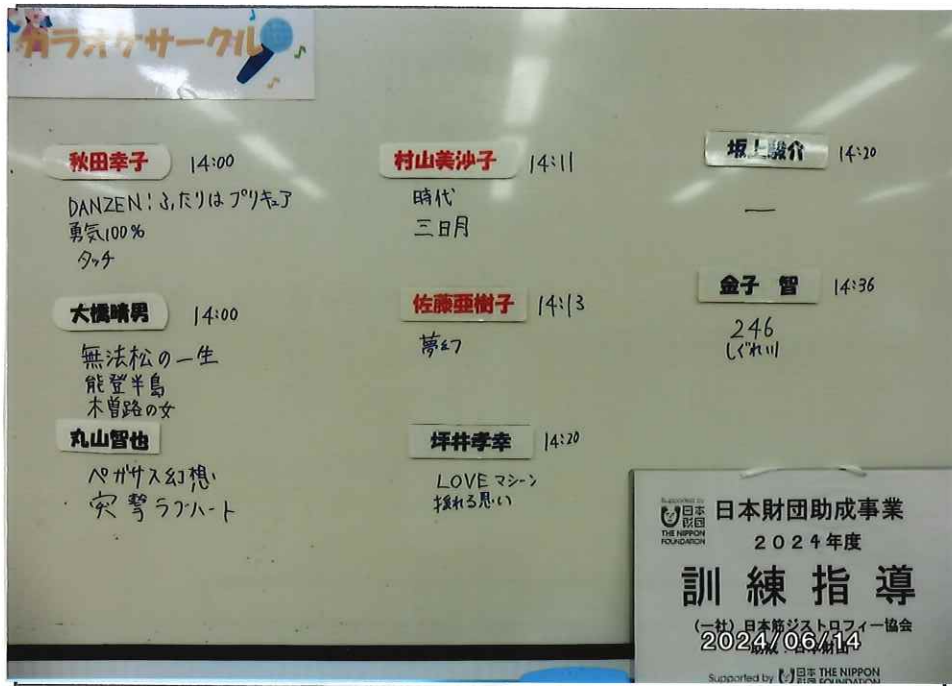 カラオケサークル
秋田幸子 14:00
DANZEN!ふたりはプリキュア
勇気100%
タッチ
大橋晴男 14:00
無法松の一生
能登半島
木曽路の女
丸山智也
ペガサス幻想
突撃ラブハート
村山美沙子 14:11
時代
三日月
佐藤亜樹子 14:13
夢幻
坪井孝幸 14:20
LOVEマシーン
揺れる思い
坂上駿介 14:20
—
金子 智 14:36
246
しぐれ川
Supported by
日本
財団
THE NIPPON
FOUNDATION
日本財団助成事業
2024年度
訓練指導
(一社)日本筋ジストロフィー協会
2024/06/14
Supported by 日本 THE NIPPON
財団 FOUNDATION